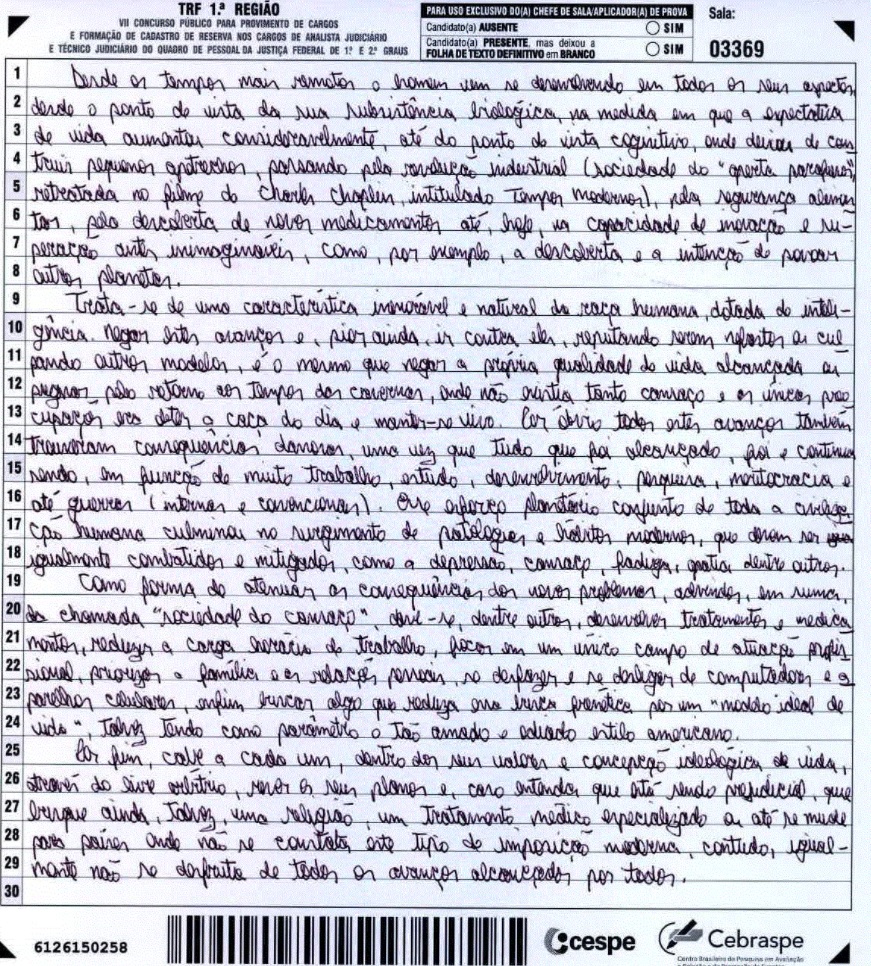 TRF 1.ª REGIÃO
VII CONCURSO PÚBLICO PARA PROVIMENTO DE CARGOS
E FORMAÇÃO DE CADASTRO DE RESERVA NOS CARGOS DE ANALISTA JUDICIÁRIO
E TÉCNICO JUDICIÁRIO DO QUADRO DE PESSOAL DA JUSTIÇA FEDERAL DE 1º E 2º GRAUS
PARA USO EXCLUSIVO DO(A) CHEFE DE SALA/APLICADOR(A) DE PROVA
Candidato(a) AUSENTE SIM
Candidato(a) PRESENTE, mas deixou a
FOLHA DE TEXTO DEFINITIVO em BRANCO SIM
Sala:
03369
1 Desde os tempos mais remotos o homem vem se desenvolvendo em todos os seus aspectos,
2 desde o ponto de vista da sua subsistência biológica, na medida em que a expectativa
3 de vida aumentou consideravelmente, até do ponto de vista cognitivo, onde deixou de cons
4 truir pequenos apetrechos, passando pela revolução industrial (sociedade do "aperta parafusos",
5 retratada no filme de Charles Chaplin, intitulado Tempos modernos), pela segurança alimen
6 tar, pela descoberta de novos medicamentos até, hoje, na capacidade de inovação e su-
7 peração antes inimagináveis, como, por exemplo, a descoberta e a intenção de povoar
8 outros planetas.
9 Trata-se de uma característica inexorável e natural da raça humana, dotada de inteli-
10 gência. Negar estes avanços e, pior ainda, ir contra eles, reputando serem nefastos ou cul
11 pando outros modelos, é o mesmo que negar a própria qualidade de vida alcançada ou
12 pugnar pelo retorno aos tempos das cavernas, onde não existia tanto cansaço e as únicas preo
13 cupações era deter a caça do dia e manter-se vivo. Por óbvio todos estes avanços também
14 trouxeram consequências danosas, uma vez que tudo que foi alcançado, foi e continua
15 sendo, em função de muito trabalho, estudo, desenvolvimento, pesquisa, meritocracia e
16 até guerras (internas e convencionais). Esse esforço planetário conjunto de toda a civiliza
17 ção humana culminou no surgimento de patologias e hábitos modernos, que devem ser
18 igualmente combatidos e mitigados, como a depressão, cansaço, fadiga, apatia dentre outros.
19 Como forma de atenuar as consequências dos novos problemas, advindos, em suma,
20 da chamada "sociedade do cansaço", deve-se, dentre outros, desenvolver tratamentos e medica
21 mentos, reduzir a carga horária de trabalho, focar em um único campo de atuação profis
22 sional, priorizar a família e as relações pessoais, se desfazer e se desligar de computadores e a
23 parelhos celulares, enfim buscar algo que reduza essa busca frenética por um "modelo ideal de
24 vida", talvez tendo como parâmetro o tão amado e odiado estilo americano.
25 Por fim, cabe a cada um, dentro dos seus valores e concepção ideológica de vida,
26 através do livre arbítrio, rever os seus planos e, caso entenda que está sendo prejudicial, que
27 busque ainda, talvez, uma religião, um tratamento médico especializado ou até se mude
28 para países onde não se constata este tipo de imposição moderna, contudo, igual-
29 mente não se desfruta de todos os avanços alcançados por todos.
30
6126150258
cespe
Cebraspe